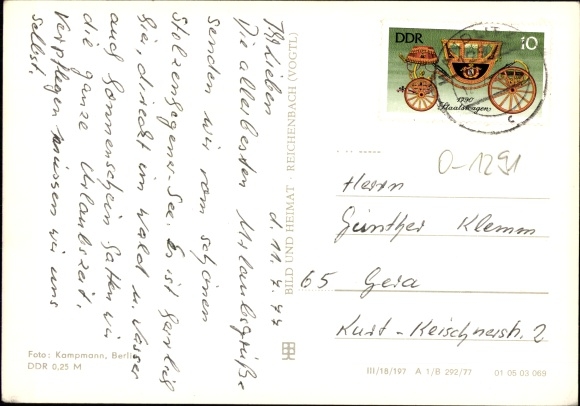 d. 11.7.77
Ihr Lieben
Die allerbesten Urlaubsgrüße
senden wir vom schönen
Stolzenhagener-See. Es ist herrlich
hier, direkt im Wald u. Wasser
auch Sonnenschein hatten wir
die ganze Urlaubszeit.
Verpflegen müssen wir uns
selbst.
BILD UND HEIMAT · REICHENBACH (VOGTL)
DDR
10
1790
Staatswagen
0-1291
Herrn
Günther Klemm
65 Gera
Kurt-Keischnerstr. 2
Foto: Kampmann, Berlin
DDR 0,25 M
III/18/197 A 1/B 292/77 01 05 03 069